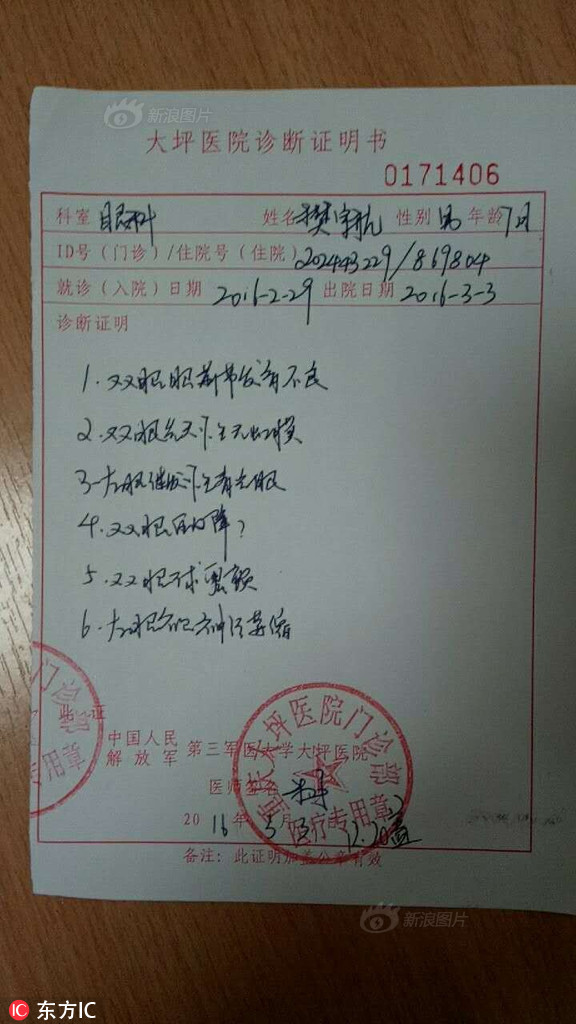 新浪图片
大坪医院诊断证明书
0171406
科室 眼科 姓名 樊宇航 性别 男 年龄 7月
ID号（门诊）/住院号（住院） 202443229/869804
就诊（入院）日期 2016-2-29 出院日期 2016-3-3
诊断证明
1. 双眼眼前节发育不良
2. 双眼先天性无虹膜
3. 左眼继发性青光眼
4. 双眼白内障？
5. 双眼球震颤
6. 左眼视神经萎缩
此证
中国人民解放军 第三军医大学大坪医院
医师签名
2016年3月
备注：此证明加盖公章有效
大坪医院门诊部
医疗专用章
门诊部
专用章
新浪图片
东方IC